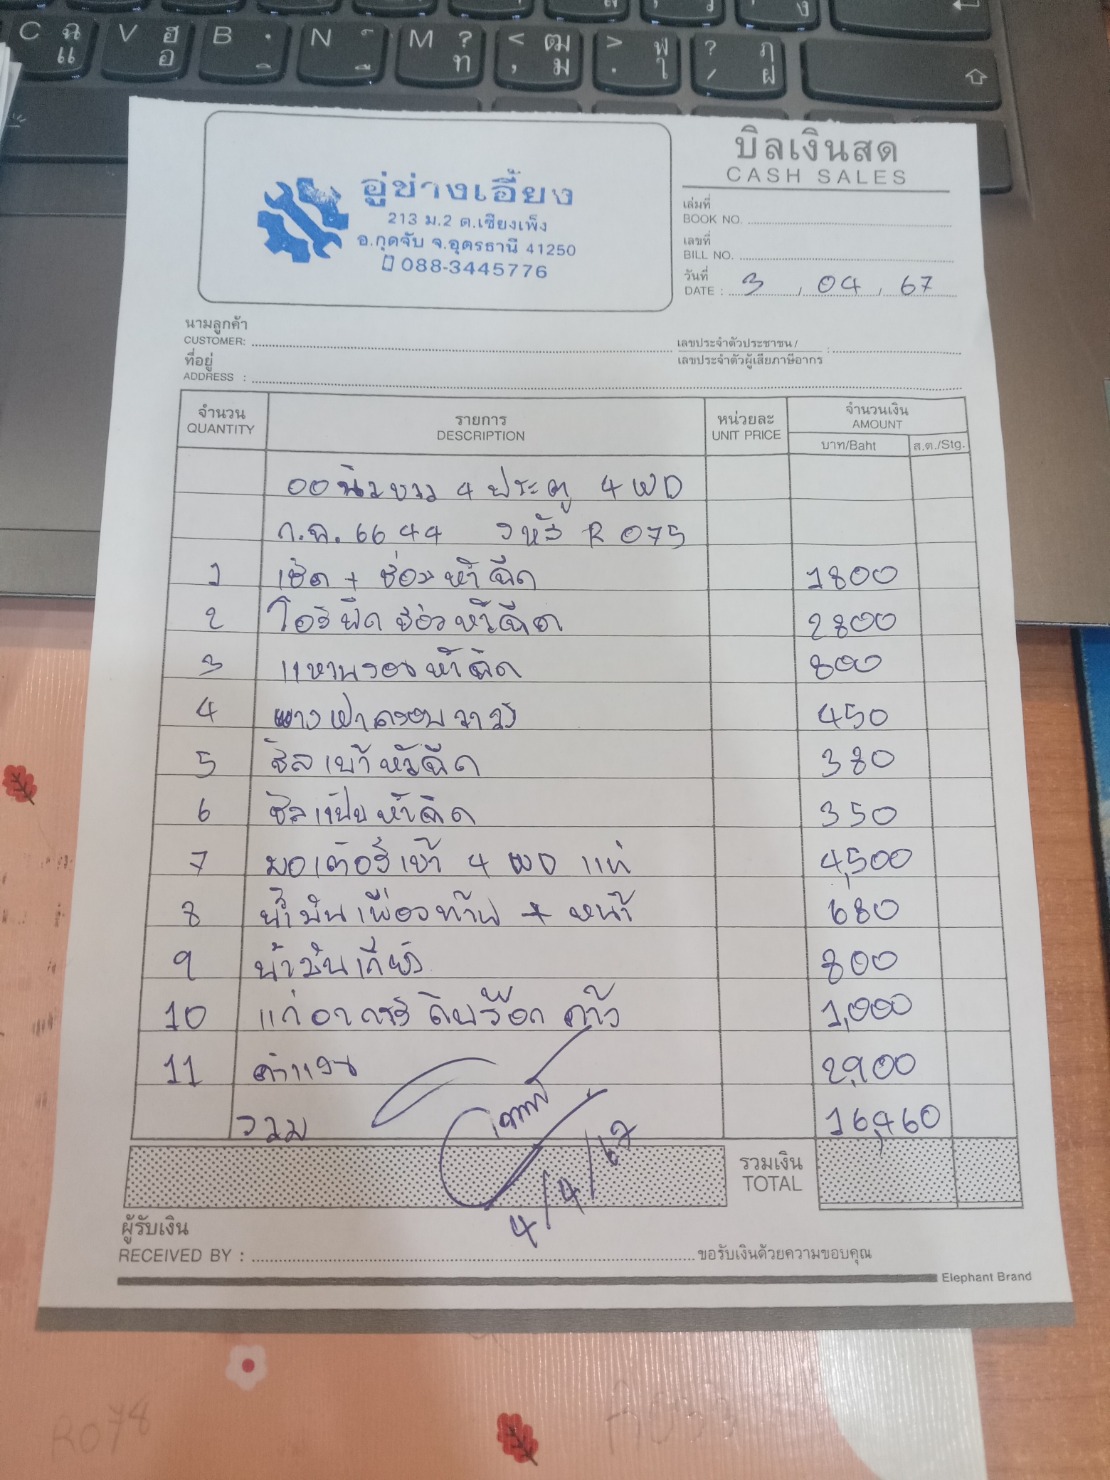 C ฉ แ V ฮ อ B N M ? ท < ฒ , ม > ฬ . ใ ? ฦ / ฝ
บิลเงินสด
CASH SALES
อู่ช่างเอี้ยง
213 ม.2 ต.เชียงเพ็ง
อ.กุดจับ จ.อุดรธานี 41250
088-3445776
เล่มที่
BOOK NO.
เลขที่
BILL NO.
วันที่
DATE : 3 / 04 / 67
นามลูกค้า
CUSTOMER:
เลขประจำตัวประชาชน /
เลขประจำตัวผู้เสียภาษีอากร :
ที่อยู่
ADDRESS :
จำนวน รายการ หน่วยละ จำนวนเงิน
QUANTITY DESCRIPTION UNIT PRICE AMOUNT
บาท/Baht ส.ต./Stg.
4 ประตู 4 WD
6644 รหัส R 075
1 เช็ด + ซ่อมหัวฉีด 1800
2 หัวฉีด 2800
3 แหวนรองหัวฉีด 800
4 ยางฝาครอบวาวล์ 450
5 ซีลเบ้าหัวฉีด 380
6 ซีลแป๊ปหัวฉีด 350
7 มอเตอร์เข้า 4 WD แท้ 4,500
8 น้ำมันเฟืองท้าย + หน้า 680
9 น้ำมันเกียร์ 800
10 แก้อาการ ค้าง 1,000
11 ค่าแรง 2,900
รวม 16,460
4/4/67
รวมเงิน
TOTAL
ผู้รับเงิน
RECEIVED BY : ขอรับเงินด้วยความขอบคุณ
Elephant Brand
R078